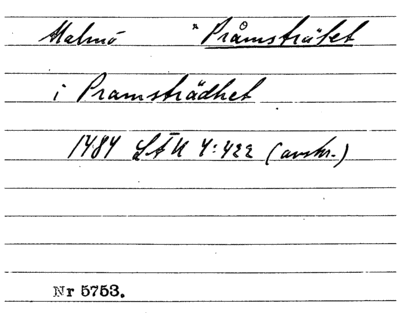 Malmö * Pråmsträtet
i Pramsträdhet
1484 LÄU 4:422 (avskr.)
Nr 5753.